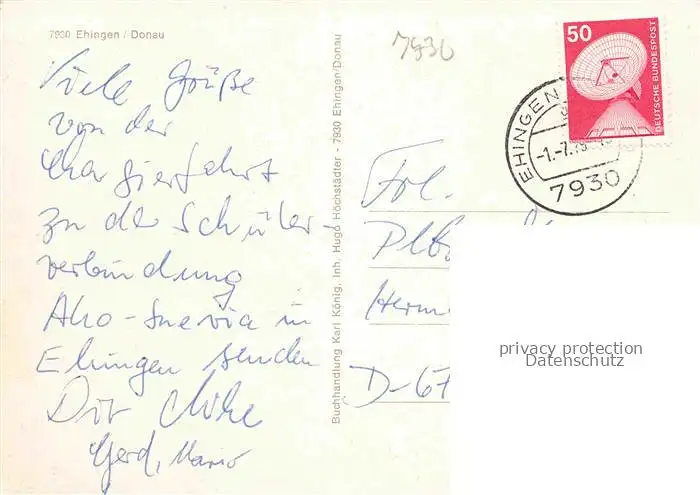 7930 Ehingen / Donau
Viele Grüße
von der
Chargierfahrt
zu der Schüler-
verbindung
Alko-Suevia in
Ehingen senden
Dir
Gerd, Mario
Buchhandlung Karl König, Inh. Hugo Höchstädter - 7930 Ehingen/Donau
7930
50
DEUTSCHE BUNDESPOST
EHINGEN
-1.-7.
7930
Frl.
D-67
privacy protection
Datenschutz